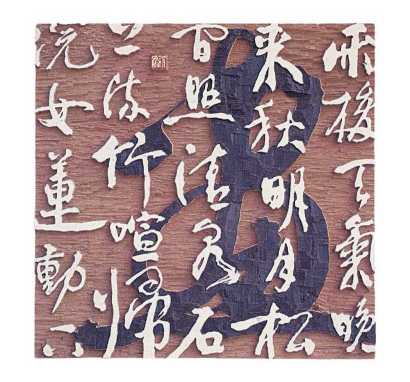 雨後天氣晚
來秋明月松
間照清泉石
上流竹喧歸
浣女蓮動下